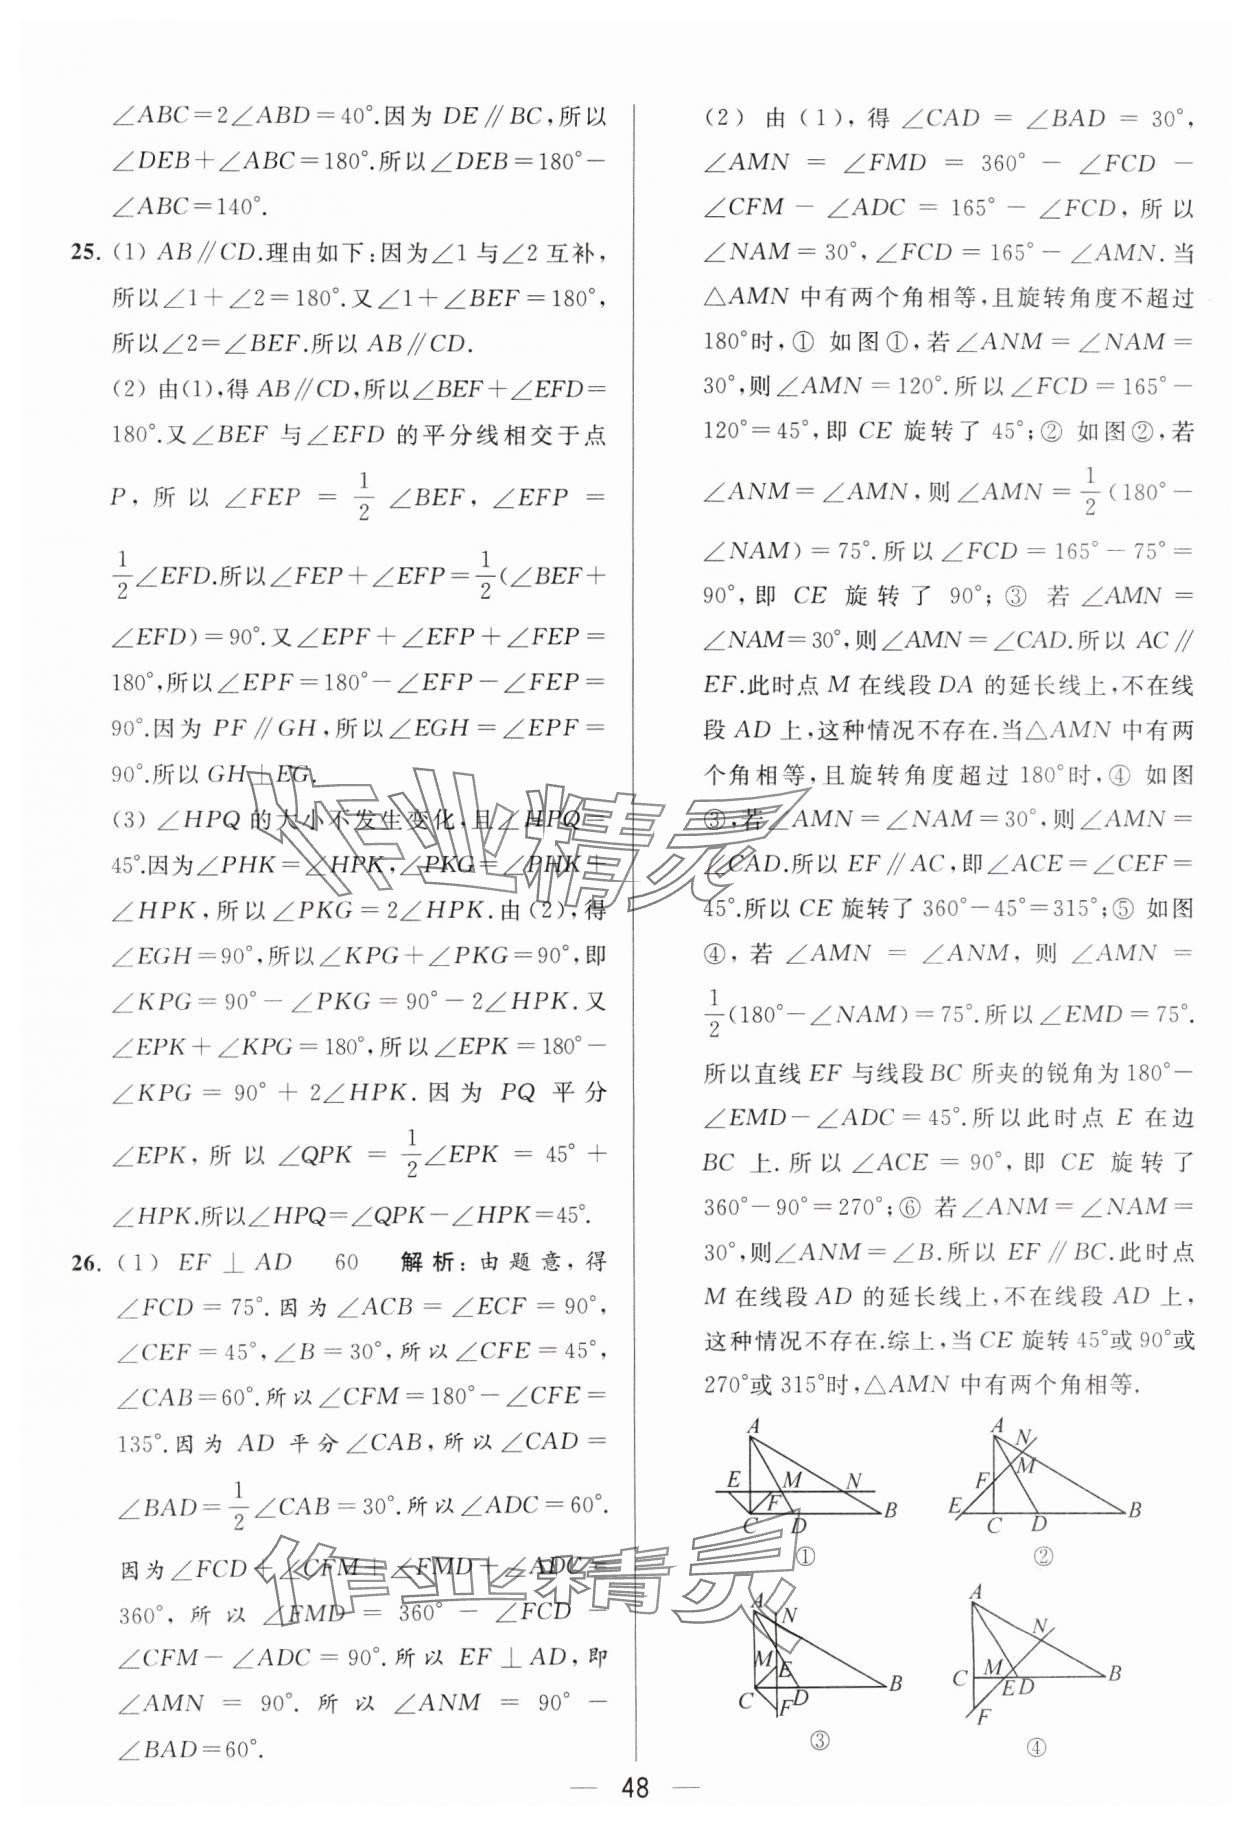 ∠ABC=2∠ABD=40°.因为 DE∥BC,所以
∠DEB+∠ABC=180°.所以∠DEB=180°−
∠ABC=140°.
25. (1) AB∥CD.理由如下:因为∠1与∠2互补,
所以∠1+∠2=180°.又∠1+∠BEF=180°,
所以∠2=∠BEF.所以 AB∥CD.
(2) 由(1),得 AB∥CD,所以∠BEF+∠EFD=
180°.又∠BEF 与∠EFD 的平分线相交于点
P,所以 ∠FEP = 1/2 ∠BEF, ∠EFP =
1/2∠EFD.所以∠FEP+∠EFP=1/2(∠BEF+
∠EFD)=90°.又∠EPF+∠EFP+∠FEP=
180°,所以∠EPF=180°−∠EFP−∠FEP=
90°.因为 PF∥GH,所以∠EGH=∠EPF=
90°.所以 GH⊥EG.
(3) ∠HPQ 的大小不发生变化,且∠HPQ=
45°.因为∠PHK=∠HPK,∠PKG=∠PHK+
∠HPK,所以∠PKG=2∠HPK.由(2),得
∠EGH=90°,所以∠KPG+∠PKG=90°,即
∠KPG=90°−∠PKG=90°−2∠HPK.又
∠EPK+∠KPG=180°,所以∠EPK=180°−
∠KPG=90°+2∠HPK.因为 PQ 平分
∠EPK,所以 ∠QPK = 1/2∠EPK = 45° +
∠HPK.所以∠HPQ=∠QPK−∠HPK=45°.
26. (1) EF⊥AD 60 解析:由题意,得
∠FCD=75°.因为∠ACB=∠ECF=90°,
∠CEF=45°,∠B=30°,所以∠CFE=45°,
∠CAB=60°.所以∠CFM=180°−∠CFE=
135°.因为 AD 平分∠CAB,所以∠CAD=
∠BAD=1/2∠CAB=30°.所以∠ADC=60°.
因为∠FCD+∠CFM+∠FMD+∠ADC=
360°,所以 ∠FMD = 360° − ∠FCD −
∠CFM−∠ADC=90°.所以 EF⊥AD,即
∠AMN = 90°.所以 ∠ANM = 90° −
∠BAD=60°.
(2) 由(1),得∠CAD=∠BAD=30°,
∠AMN = ∠FMD = 360° − ∠FCD −
∠CFM−∠ADC=165°−∠FCD,所以
∠NAM=30°,∠FCD=165°−∠AMN.当
△AMN 中有两个角相等,且旋转角度不超过
180°时,① 如图①,若∠ANM=∠NAM=
30°,则∠AMN=120°.所以∠FCD=165°−
120°=45°,即 CE 旋转了 45°;② 如图②,若
∠ANM=∠AMN,则∠AMN=1/2(180°−
∠NAM)=75°.所以∠FCD=165°−75°=
90°,即 CE 旋转了 90°;③ 若∠AMN=
∠NAM=30°,则∠AMN=∠CAD.所以 AC∥
EF.此时点 M 在线段 DA 的延长线上,不在线
段 AD 上,这种情况不存在.当△AMN 中有两
个角相等,且旋转角度超过 180°时,④ 如图
③,若∠AMN=∠NAM=30°,则∠AMN=
∠CAD.所以 EF∥AC,即∠ACE=∠CEF=
45°.所以 CE 旋转了 360°−45°=315°;⑤ 如图
④,若 ∠AMN = ∠ANM,则 ∠AMN =
1/2(180°−∠NAM)=75°.所以∠EMD=75°.
所以直线 EF 与线段 BC 所夹的锐角为 180°−
∠EMD−∠ADC=45°.所以此时点 E 在边
BC 上.所以∠ACE=90°,即 CE 旋转了
360°−90°=270°;⑥ 若∠ANM=∠NAM=
30°,则∠ANM=∠B.所以 EF∥BC.此时点
M 在线段 AD 的延长线上,不在线段 AD 上,
这种情况不存在.综上,当 CE 旋转 45°或 90°或
270°或 315°时,△AMN 中有两个角相等.
A E M N F C D B
①
A N M F E C D B
②
A N M E C D F B
③
A N C M E D B F
④
作业精灵
作业精灵
48